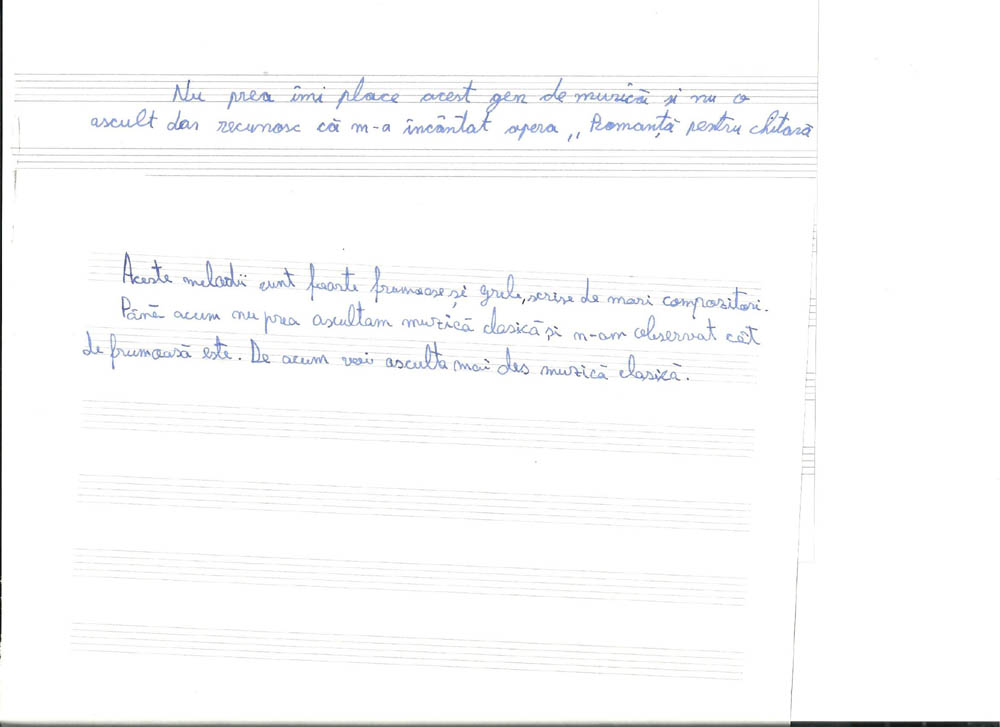 Nu prea îmi place acest gen de muzică și nu o
ascult dar recunosc că m-a încântat opera ,, Romanță pentru chitară
Aceste melodii sunt foarte frumoase și grele, scrise de mari compozitori.
Până acum nu prea ascultam muzică clasică și n-am observat cât
de frumoasă este. De acum voi asculta mai des muzică clasică.